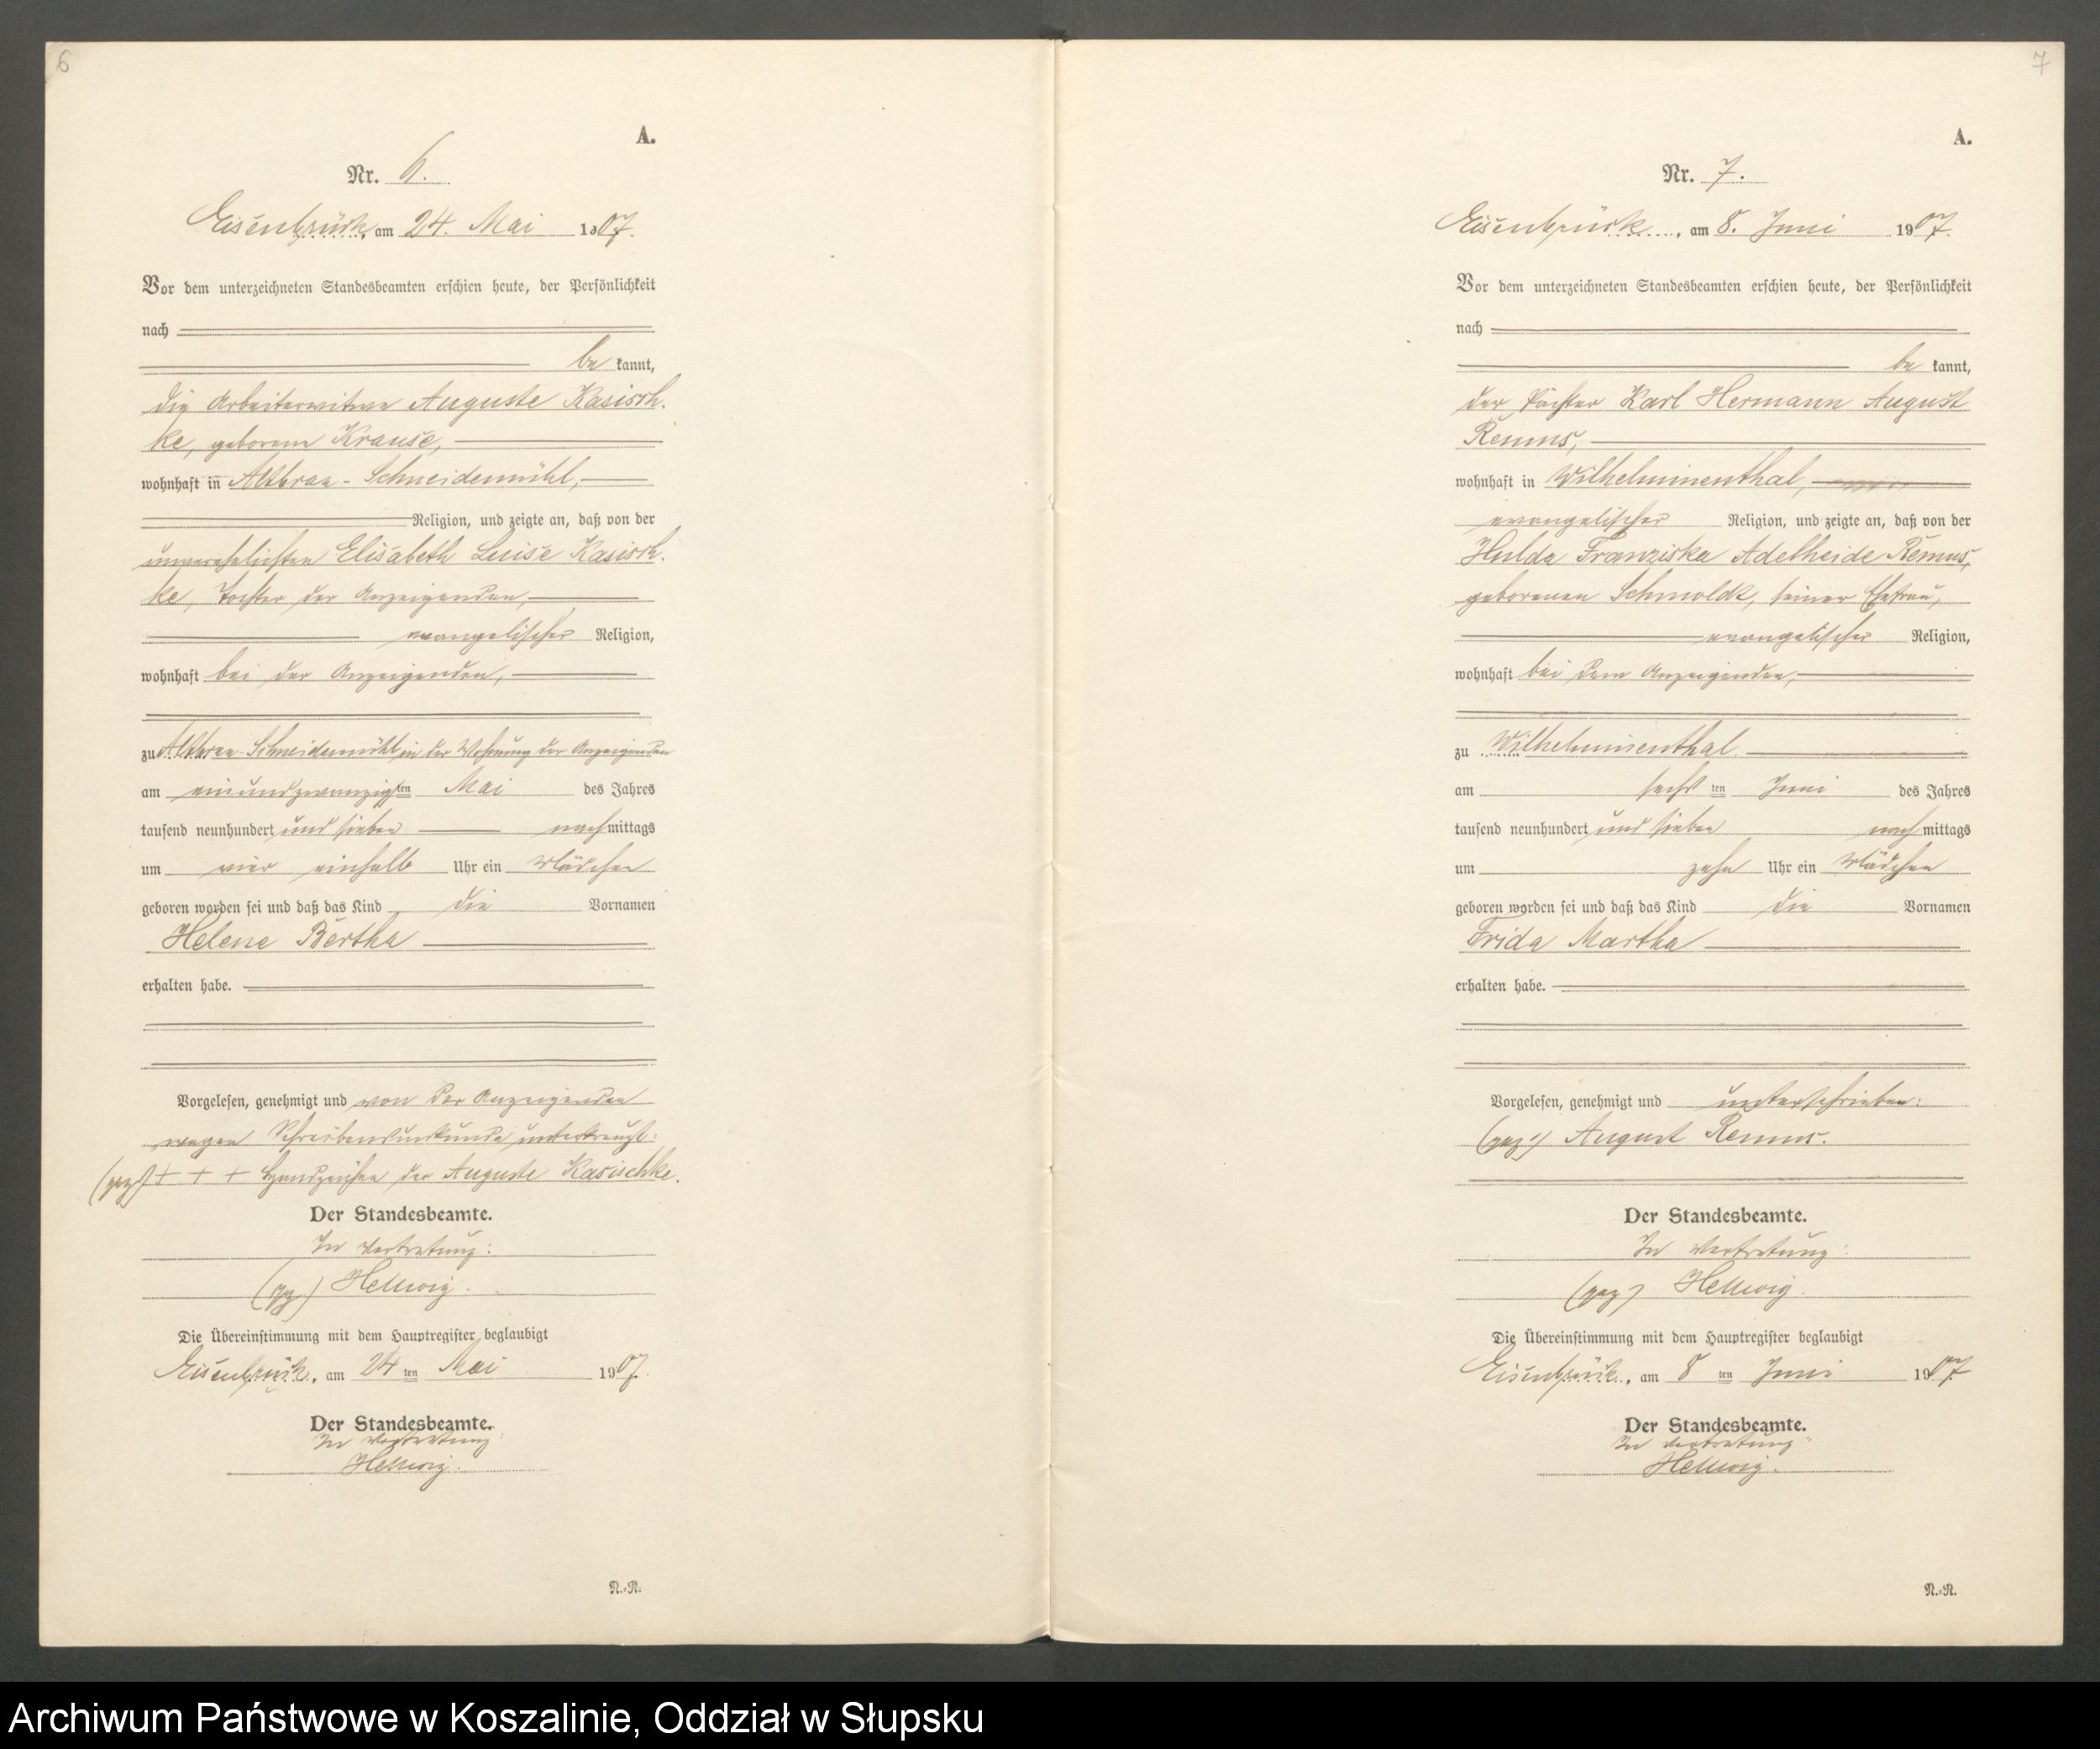 6
A.
Nr. 6.
Eisenbrück, am 24. Mai 1907.
Vor dem unterzeichneten Standesbeamten erschien heute, der Persönlichkeit
nach
be kannt,
die Arbeiterwitwe Auguste Kasisch-
ke, geborene Krause,
wohnhaft in Altbraa-Schneidemühl,
Religion, und zeigte an, daß von der
unverehelichten Elisabeth Luise Kasisch-
ke, Tochter der Anzeigenden,
evangelischer Religion,
wohnhaft bei der Anzeigenden,
zu Altbraa-Schneidemühl in der Wohnung der Anzeigenden
am einundzwanzigsten Mai des Jahres
tausend neunhundert und sieben nachmittags
um vier einhalb Uhr ein Mädchen
geboren worden sei und daß das Kind die Vornamen
Helene Bertha
erhalten habe.
Vorgelesen, genehmigt und von der Anzeigenden
wegen Schreibensunkunde unterkreuzt:
(gez.) + + + Handzeichen der Auguste Kasischke.
Der Standesbeamte.
In Vertretung:
(gz.) Hellwig.
Die Übereinstimmung mit dem Hauptregister beglaubigt
Eisenbrück, am 24 ten Mai 1907.
Der Standesbeamte.
In Vertretung:
Hellwig.
N.-R.
7
A.
Nr. 7.
Eisenbrück, am 8. Juni 1907.
Vor dem unterzeichneten Standesbeamten erschien heute, der Persönlichkeit
nach
be kannt,
der Pächter Karl Hermann August
Remus,
wohnhaft in Wilhelminenthal,
evangelischer Religion, und zeigte an, daß von der
Hulda Franziska Adelheide Remus,
geborenen Schmoldt, seiner Ehefrau,
evangelischer Religion,
wohnhaft bei dem Anzeigenden,
zu Wilhelminenthal
am sechsten Juni des Jahres
tausend neunhundert und sieben nachmittags
um zehn Uhr ein Mädchen
geboren worden sei und daß das Kind die Vornamen
Frida Martha
erhalten habe.
Vorgelesen, genehmigt und unterschrieben:
(gez.) August Remus.
Der Standesbeamte.
In Vertretung:
(gez) Hellwig.
Die Übereinstimmung mit dem Hauptregister beglaubigt
Eisenbrück, am 8 ten Juni 1907
Der Standesbeamte.
In Vertretung:
Hellwig.
N.-R.
Archiwum Państwowe w Koszalinie, Oddział w Słupsku